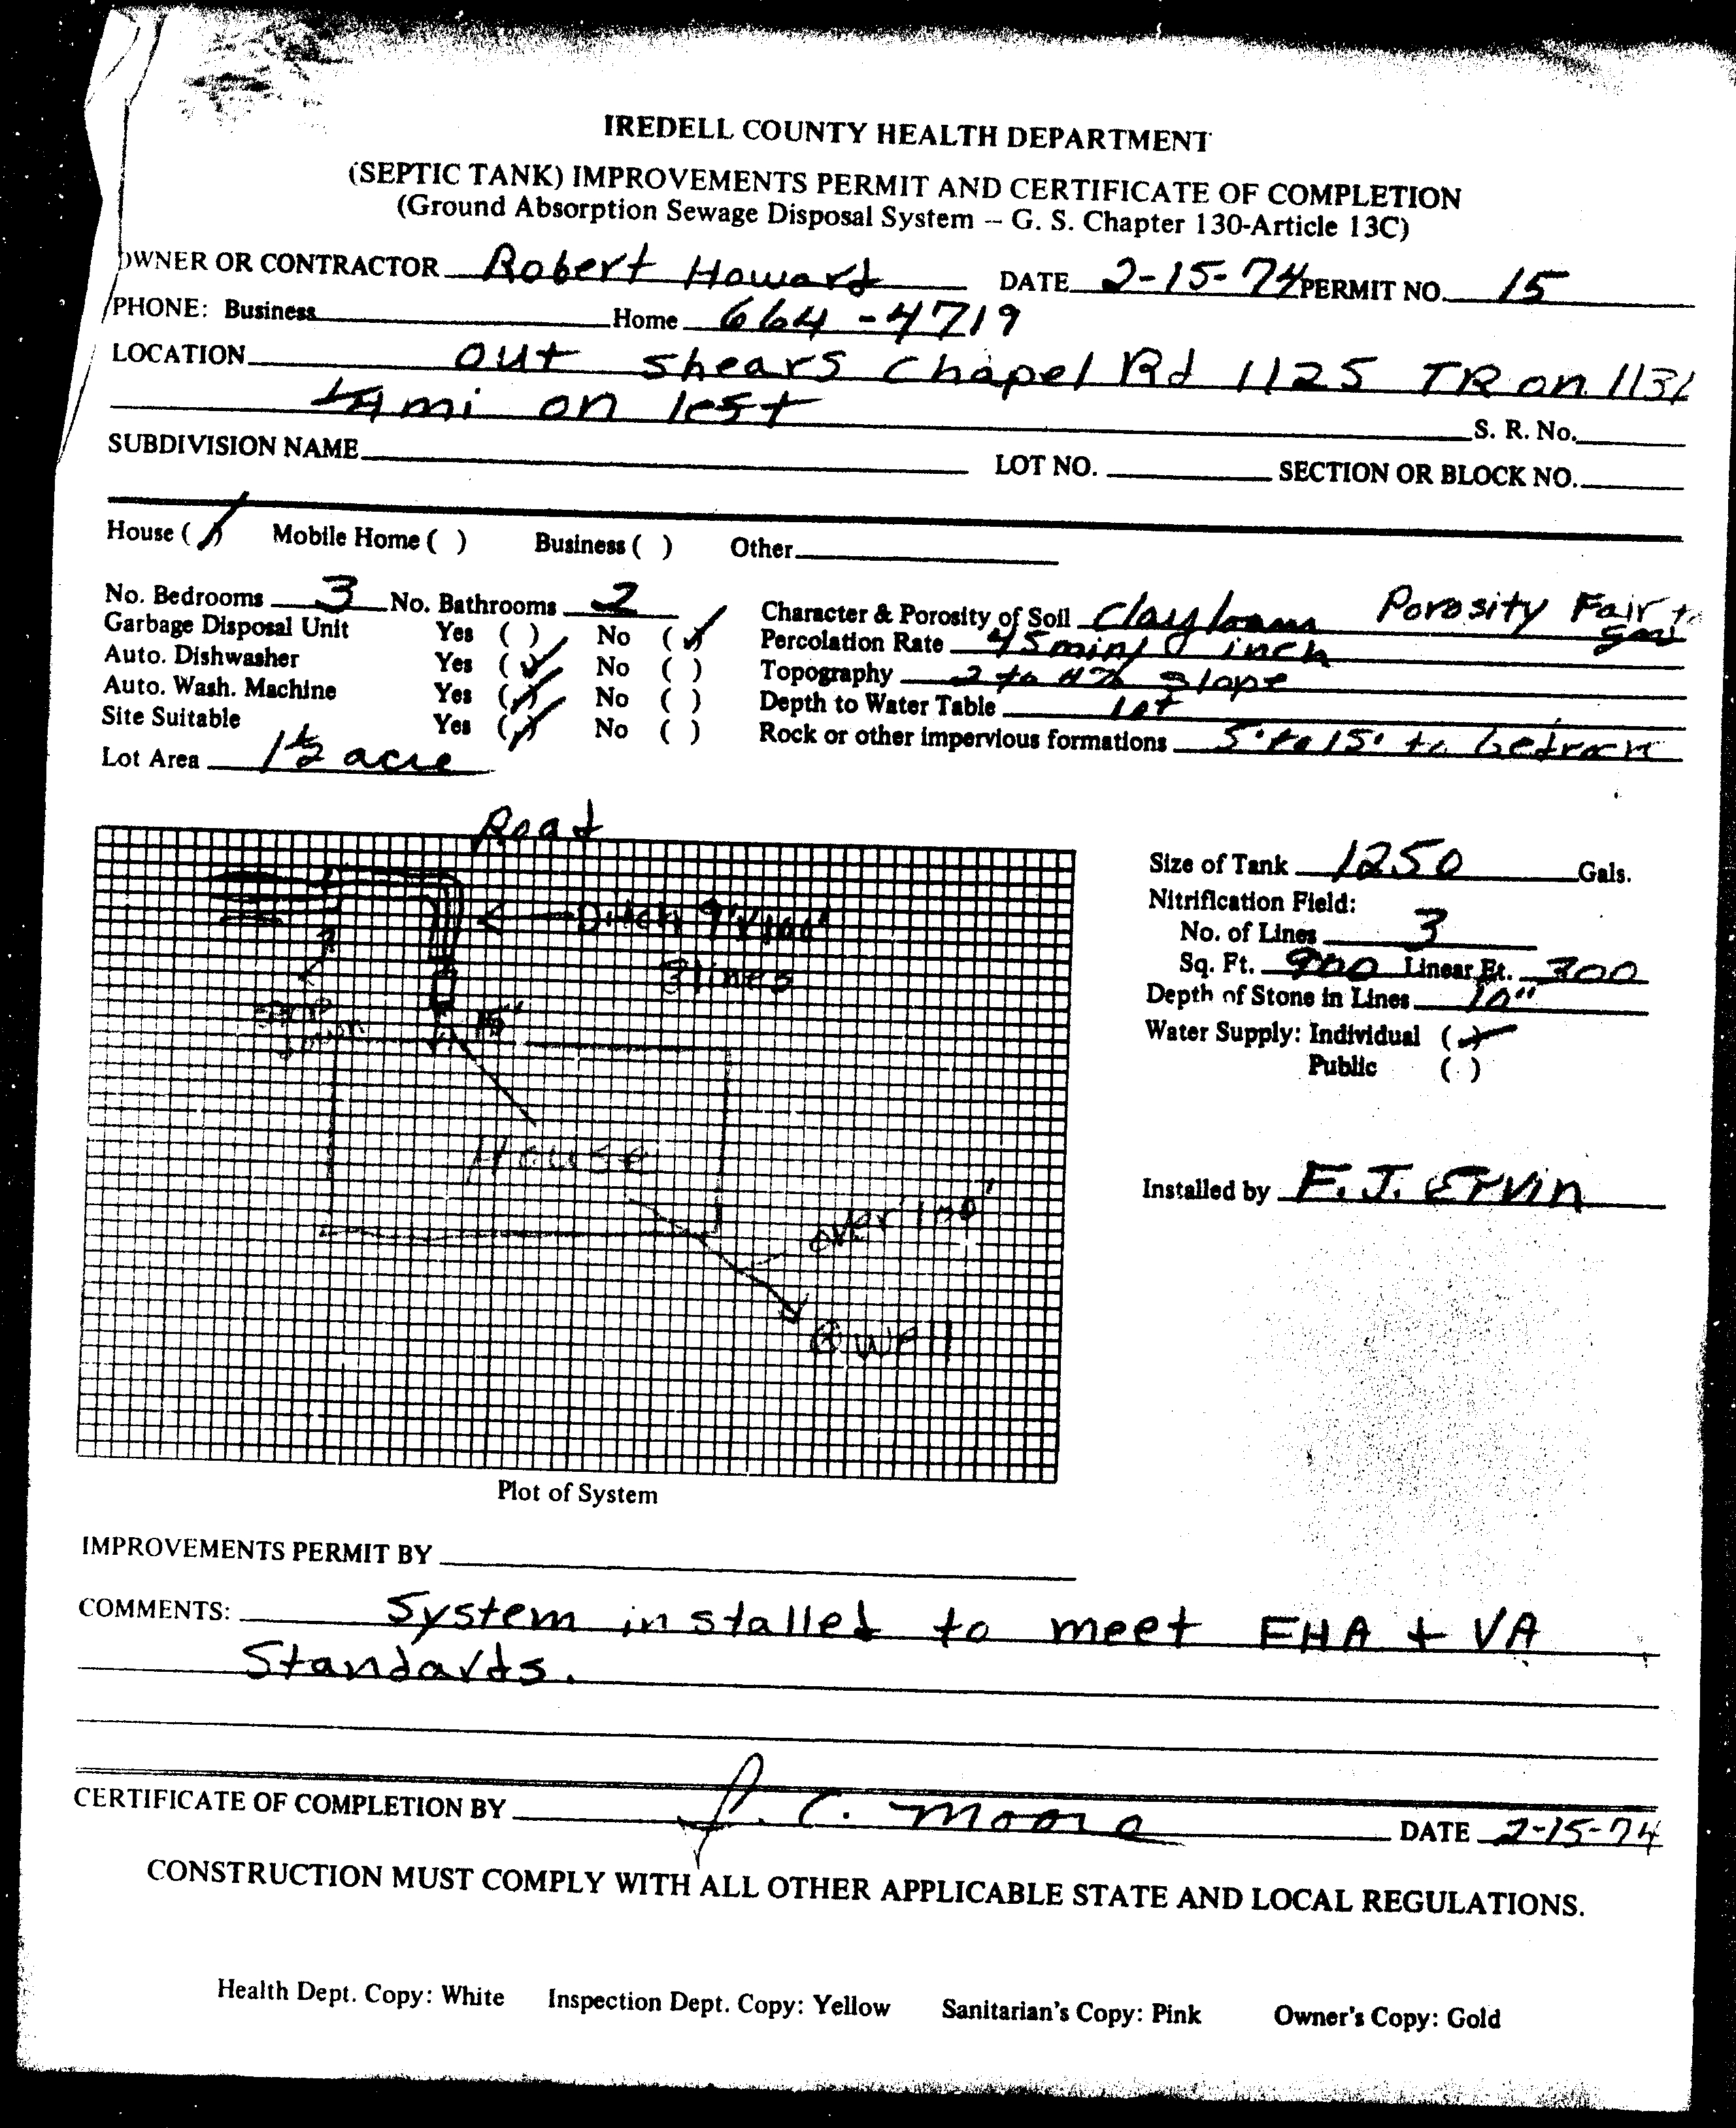 IREDELL COUNTY HEALTH DEPARTMENT
(SEPTIC TANK) IMPROVEMENTS PERMIT AND CERTIFICATE OF COMPLETION
(Ground Absorption Sewage Disposal System — G. S. Chapter 130-Article 13C)
OWNER OR CONTRACTOR Robert Howard DATE 2-15-74 PERMIT NO. 15
PHONE: Business Home 664-4719
LOCATION out Shears Chapel Rd 1125 TR on 1131
mi on left
S. R. No.
SUBDIVISION NAME LOT NO. SECTION OR BLOCK NO.
House (✓) Mobile Home ( ) Business ( ) Other
No. Bedrooms 3 No. Bathrooms 2 Character & Porosity of Soil Clay loam Porosity Fair to
Garbage Disposal Unit Yes ( ) No (✓) Percolation Rate 45 min/inch
Auto. Dishwasher Yes (✓) No ( ) Topography 2 to 4% Slope
Auto. Wash. Machine Yes (✓) No ( ) Depth to Water Table
Site Suitable Yes (✓) No ( ) Rock or other impervious formations 5' to 15' to bedrock
Lot Area 1½ acre
Road
Ditch 100'
3 lines
15'
House
over 100'
⊗ Well
Plot of System
Size of Tank 1250 Gals.
Nitrification Field:
No. of Lines 3
Sq. Ft. 900 Linear Ft. 300
Depth of Stone in Lines 10"
Water Supply: Individual (✓)
Public ( )
Installed by F. J. Ervin
IMPROVEMENTS PERMIT BY
COMMENTS: System installed to meet FHA + VA
Standards.
CERTIFICATE OF COMPLETION BY J. C. Moore DATE 2-15-74
CONSTRUCTION MUST COMPLY WITH ALL OTHER APPLICABLE STATE AND LOCAL REGULATIONS.
Health Dept. Copy: White Inspection Dept. Copy: Yellow Sanitarian's Copy: Pink Owner's Copy: Gold